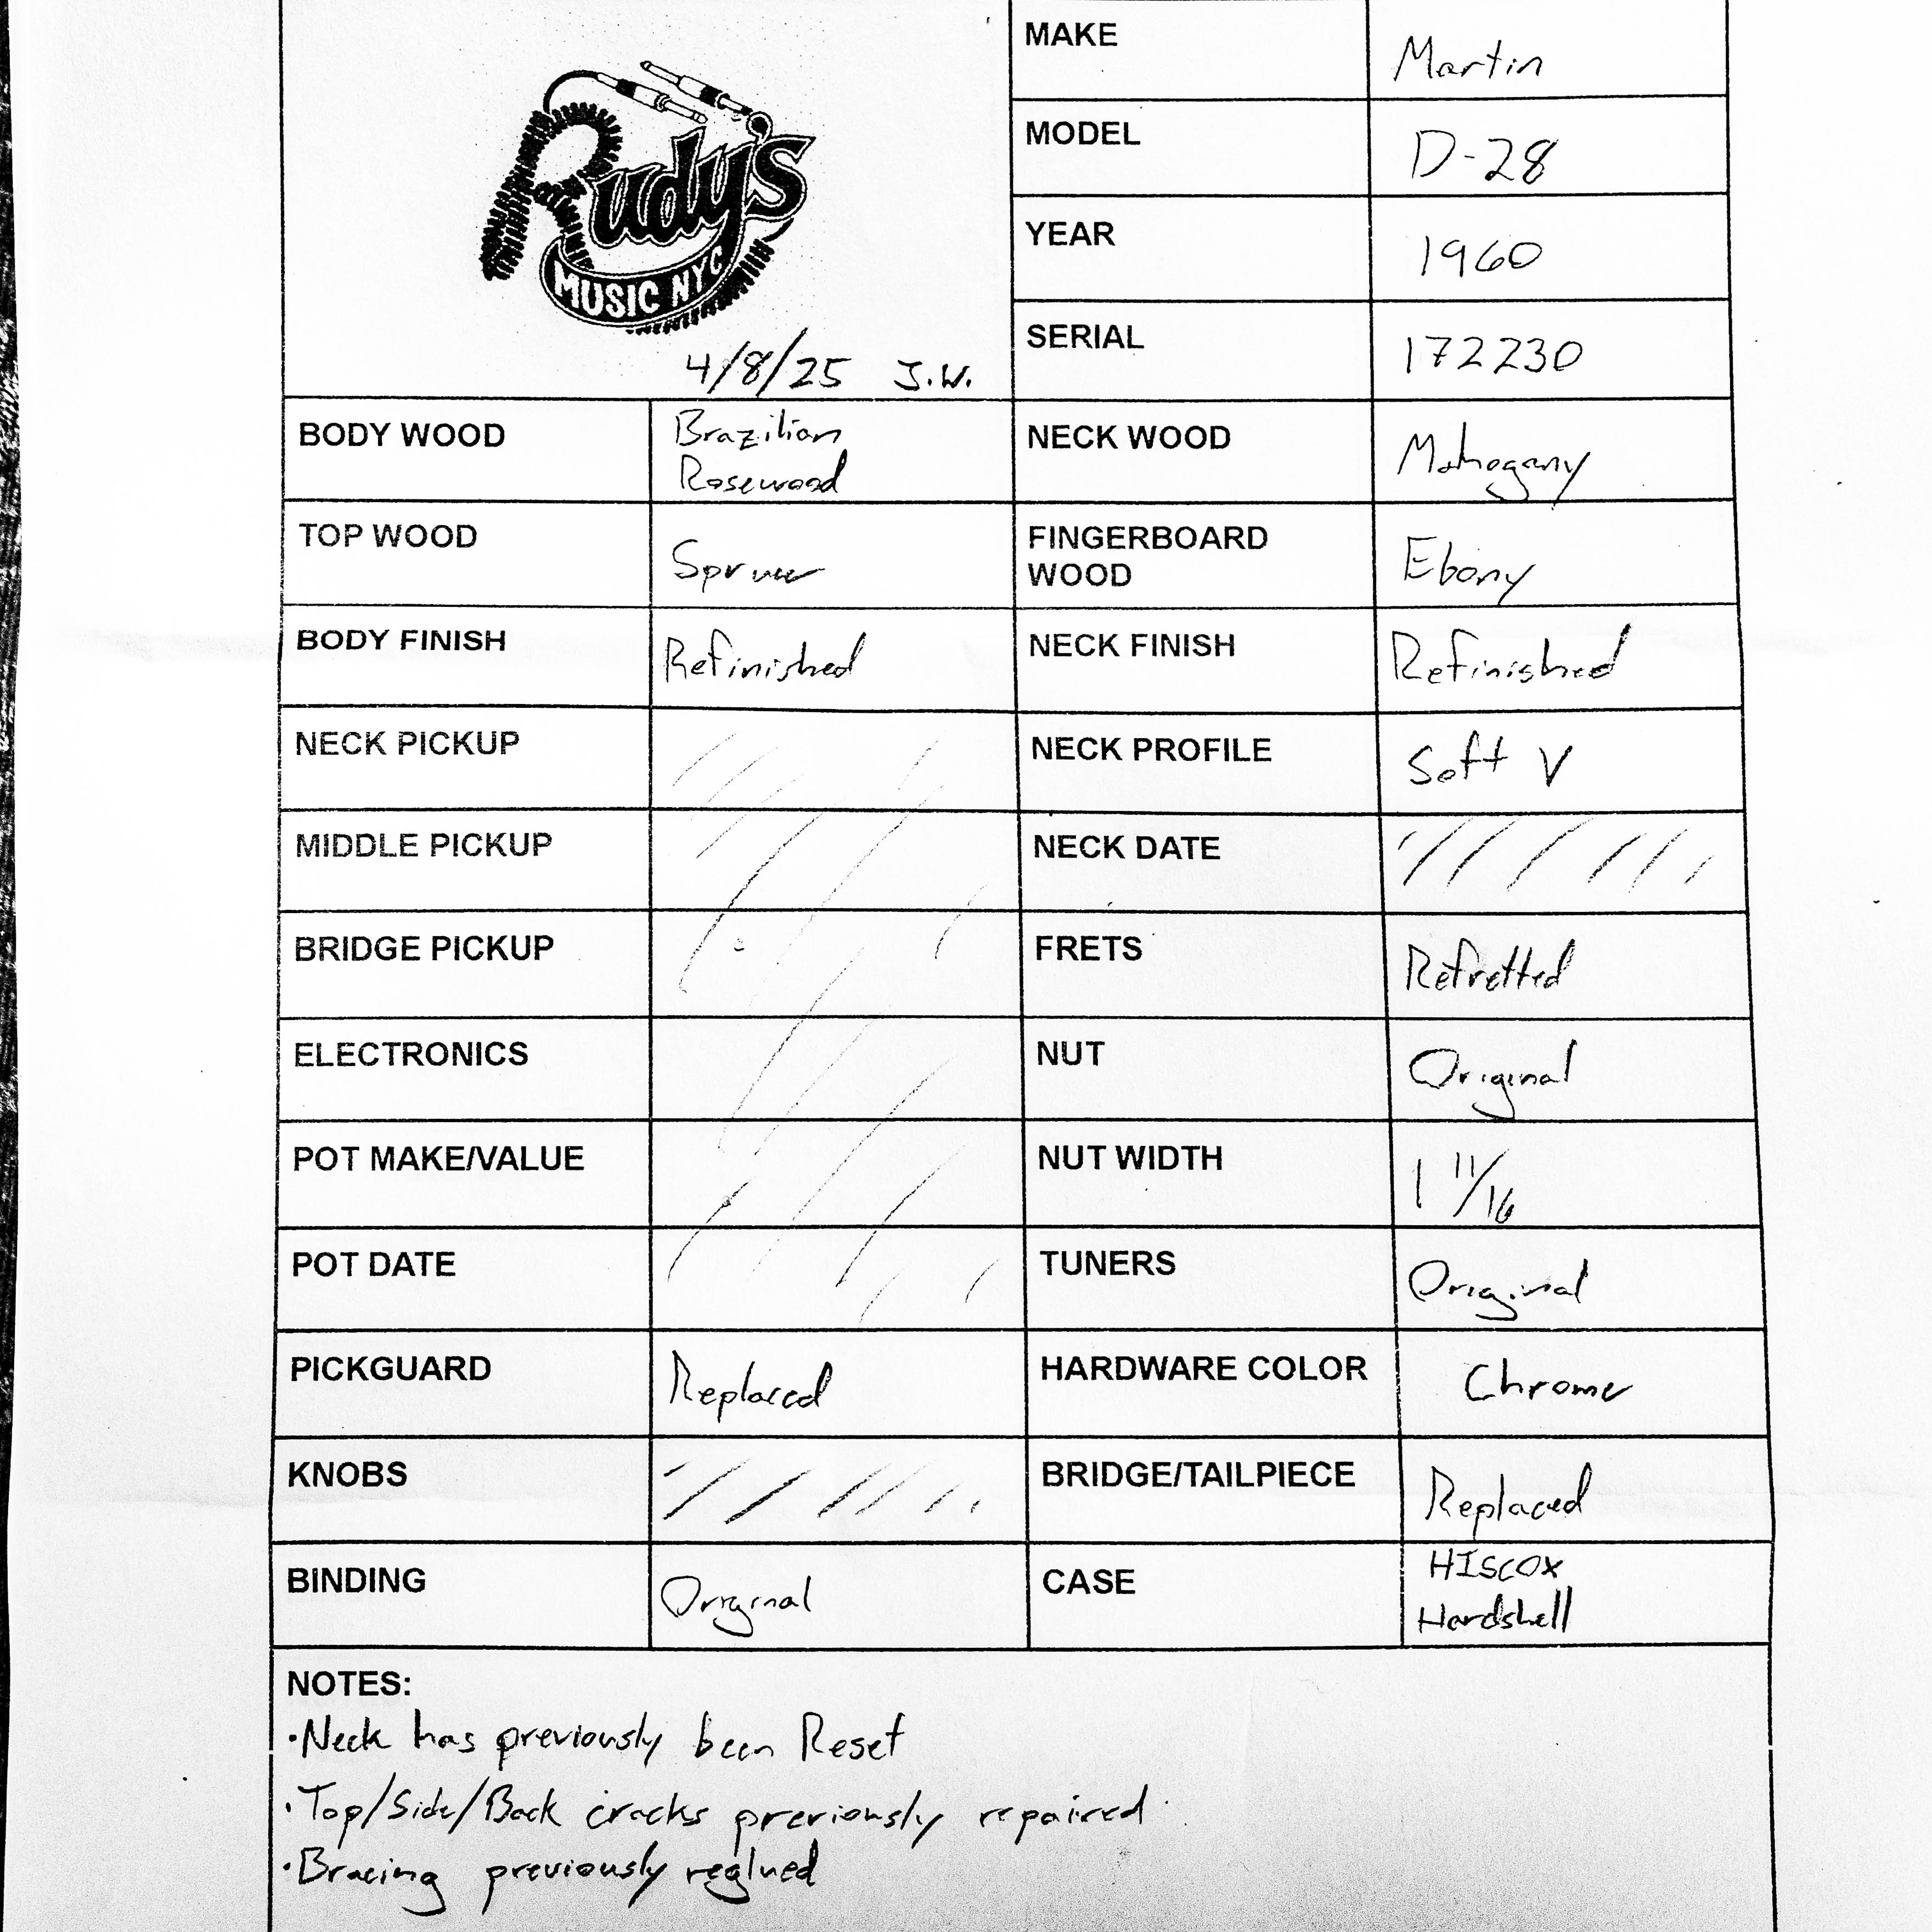 Rudy's
MUSIC NYC
4/8/25 J.W.
MAKE Martin
MODEL D-28
YEAR 1960
SERIAL 172230
BODY WOOD Brazilian
Rosewood
NECK WOOD Mahogany
TOP WOOD Spruce
FINGERBOARD
WOOD Ebony
BODY FINISH Refinished
NECK FINISH Refinished
NECK PICKUP
NECK PROFILE Soft V
MIDDLE PICKUP
NECK DATE
BRIDGE PICKUP
FRETS Refretted
ELECTRONICS
NUT Original
POT MAKE/VALUE
NUT WIDTH 1 11/16
POT DATE
TUNERS Original
PICKGUARD Replaced
HARDWARE COLOR Chrome
KNOBS
BRIDGE/TAILPIECE Replaced
BINDING Original
CASE HIscox
Hardshell
NOTES:
•Neck has previously been Reset
•Top/Side/Back cracks previously repaired
•Bracing previously reglued